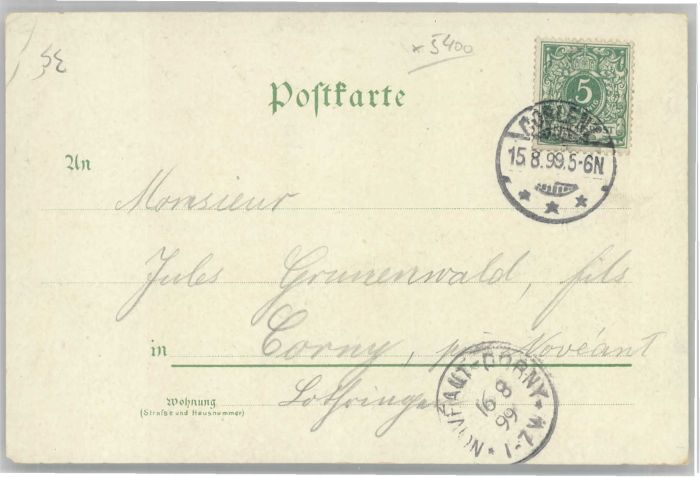 x 5400
Postkarte
5
COBLENZ
15.8.99.5-6N
An
Monsieur
Jules Grunenwald, fils
in Corny, près Novéant
Lothringen
Wohnung
(Straße und Hausnummer)
NOVÉANT-CORNY
16 8
99